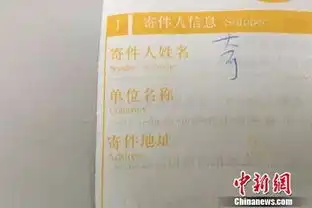 1 寄件人信息 Shipper
寄件人姓名
单位名称
Company
寄件地址
Address
中新网
Chinanews.com